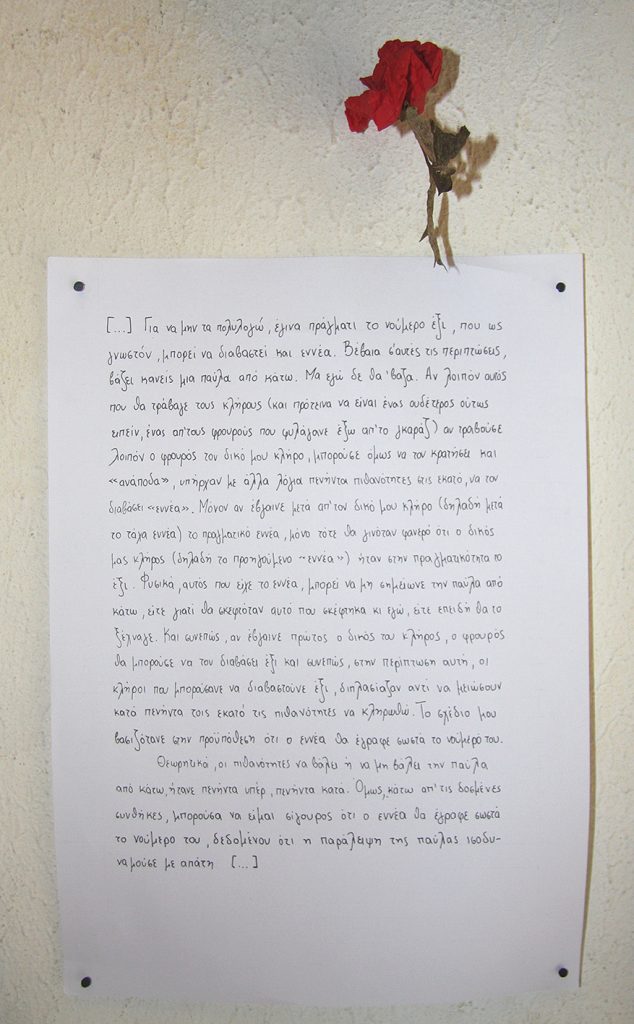 [...] Για να μην τα πολυλογώ, έγινα πράγματι το νούμερο έξι, που ως
γνωστόν, μπορεί να διαβαστεί και εννέα. Βέβαια σ'αυτές τις περιπτώσεις,
βάζει κανείς μια παύλα από κάτω. Μα εγώ δε θα 'βαζα. Αν λοιπόν αυτός
που θα τράβαγε τους κλήρους (και πρότεινα να είναι ένας ουδέτερος ούτως
ειπείν, ένας απ'τους φρουρούς που φυλάγανε έξω απ'το γκαράζ) αν τραβούσε
λοιπόν ο φρουρός τον δικό μου κλήρο, μπορούσε όμως να τον κρατήσει και
«ανάποδα», υπήρχαν με άλλα λόγια πενήντα πιθανότητες στις εκατό, να τον
διαβάσει «εννέα». Μόνον αν έβγαινε μετά απ'τον δικό μου κλήρο (δηλαδή μετά
το τάχα εννέα) το πραγματικό εννέα, μόνο τότε θα γινόταν φανερό ότι ο δικός
μας κλήρος (δηλαδή το προηγούμενο «εννέα») ήταν στην πραγματικότητα το
έξι. Φυσικά, αυτός που είχε το εννέα, μπορεί να μη σημείωνε την παύλα από
κάτω, είτε γιατί θα σκεφτόταν αυτό που σκέφτηκα κι εγώ, είτε επειδή θα το
ξέχναγε. Και συνεπώς, αν έβγαινε πρώτος ο δικός του κλήρος, ο φρουρός
θα μπορούσε να τον διαβάσει έξι και συνεπώς, στην περίπτωση αυτή, οι
κλήροι που μπορούσανε να διαβαστούνε έξι, διπλασίαζαν αντί να μειώσουν
κατά πενήντα τοις εκατό τις πιθανότητες να κληρωθώ. Το σχέδιο μου
βασιζότανε στην προϋπόθεση ότι ο εννέα θα έγραφε σωστά το νούμερό του.
Θεωρητικά, οι πιθανότητες να βάλει ή να μη βάλει την παύλα
από κάτω, ήτανε πενήντα υπέρ, πενήντα κατά. Όμως, κάτω απ'τις δοσμένες
συνθήκες, μπορούσα να είμαι σίγουρος ότι ο εννέα θα έγραφε σωστά
το νούμερο του, δεδομένου ότι η παράλειψη της παύλας ισοδυ-
ναμούσε με απάτη [...]